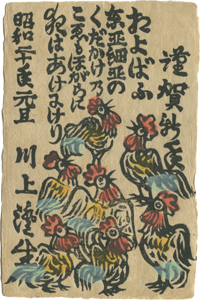 謹賀新年
およばふ
東亜細亜の
くだかけの
こゑもほがらに
夜はあけにけり
昭和二十年元旦
川上澄生